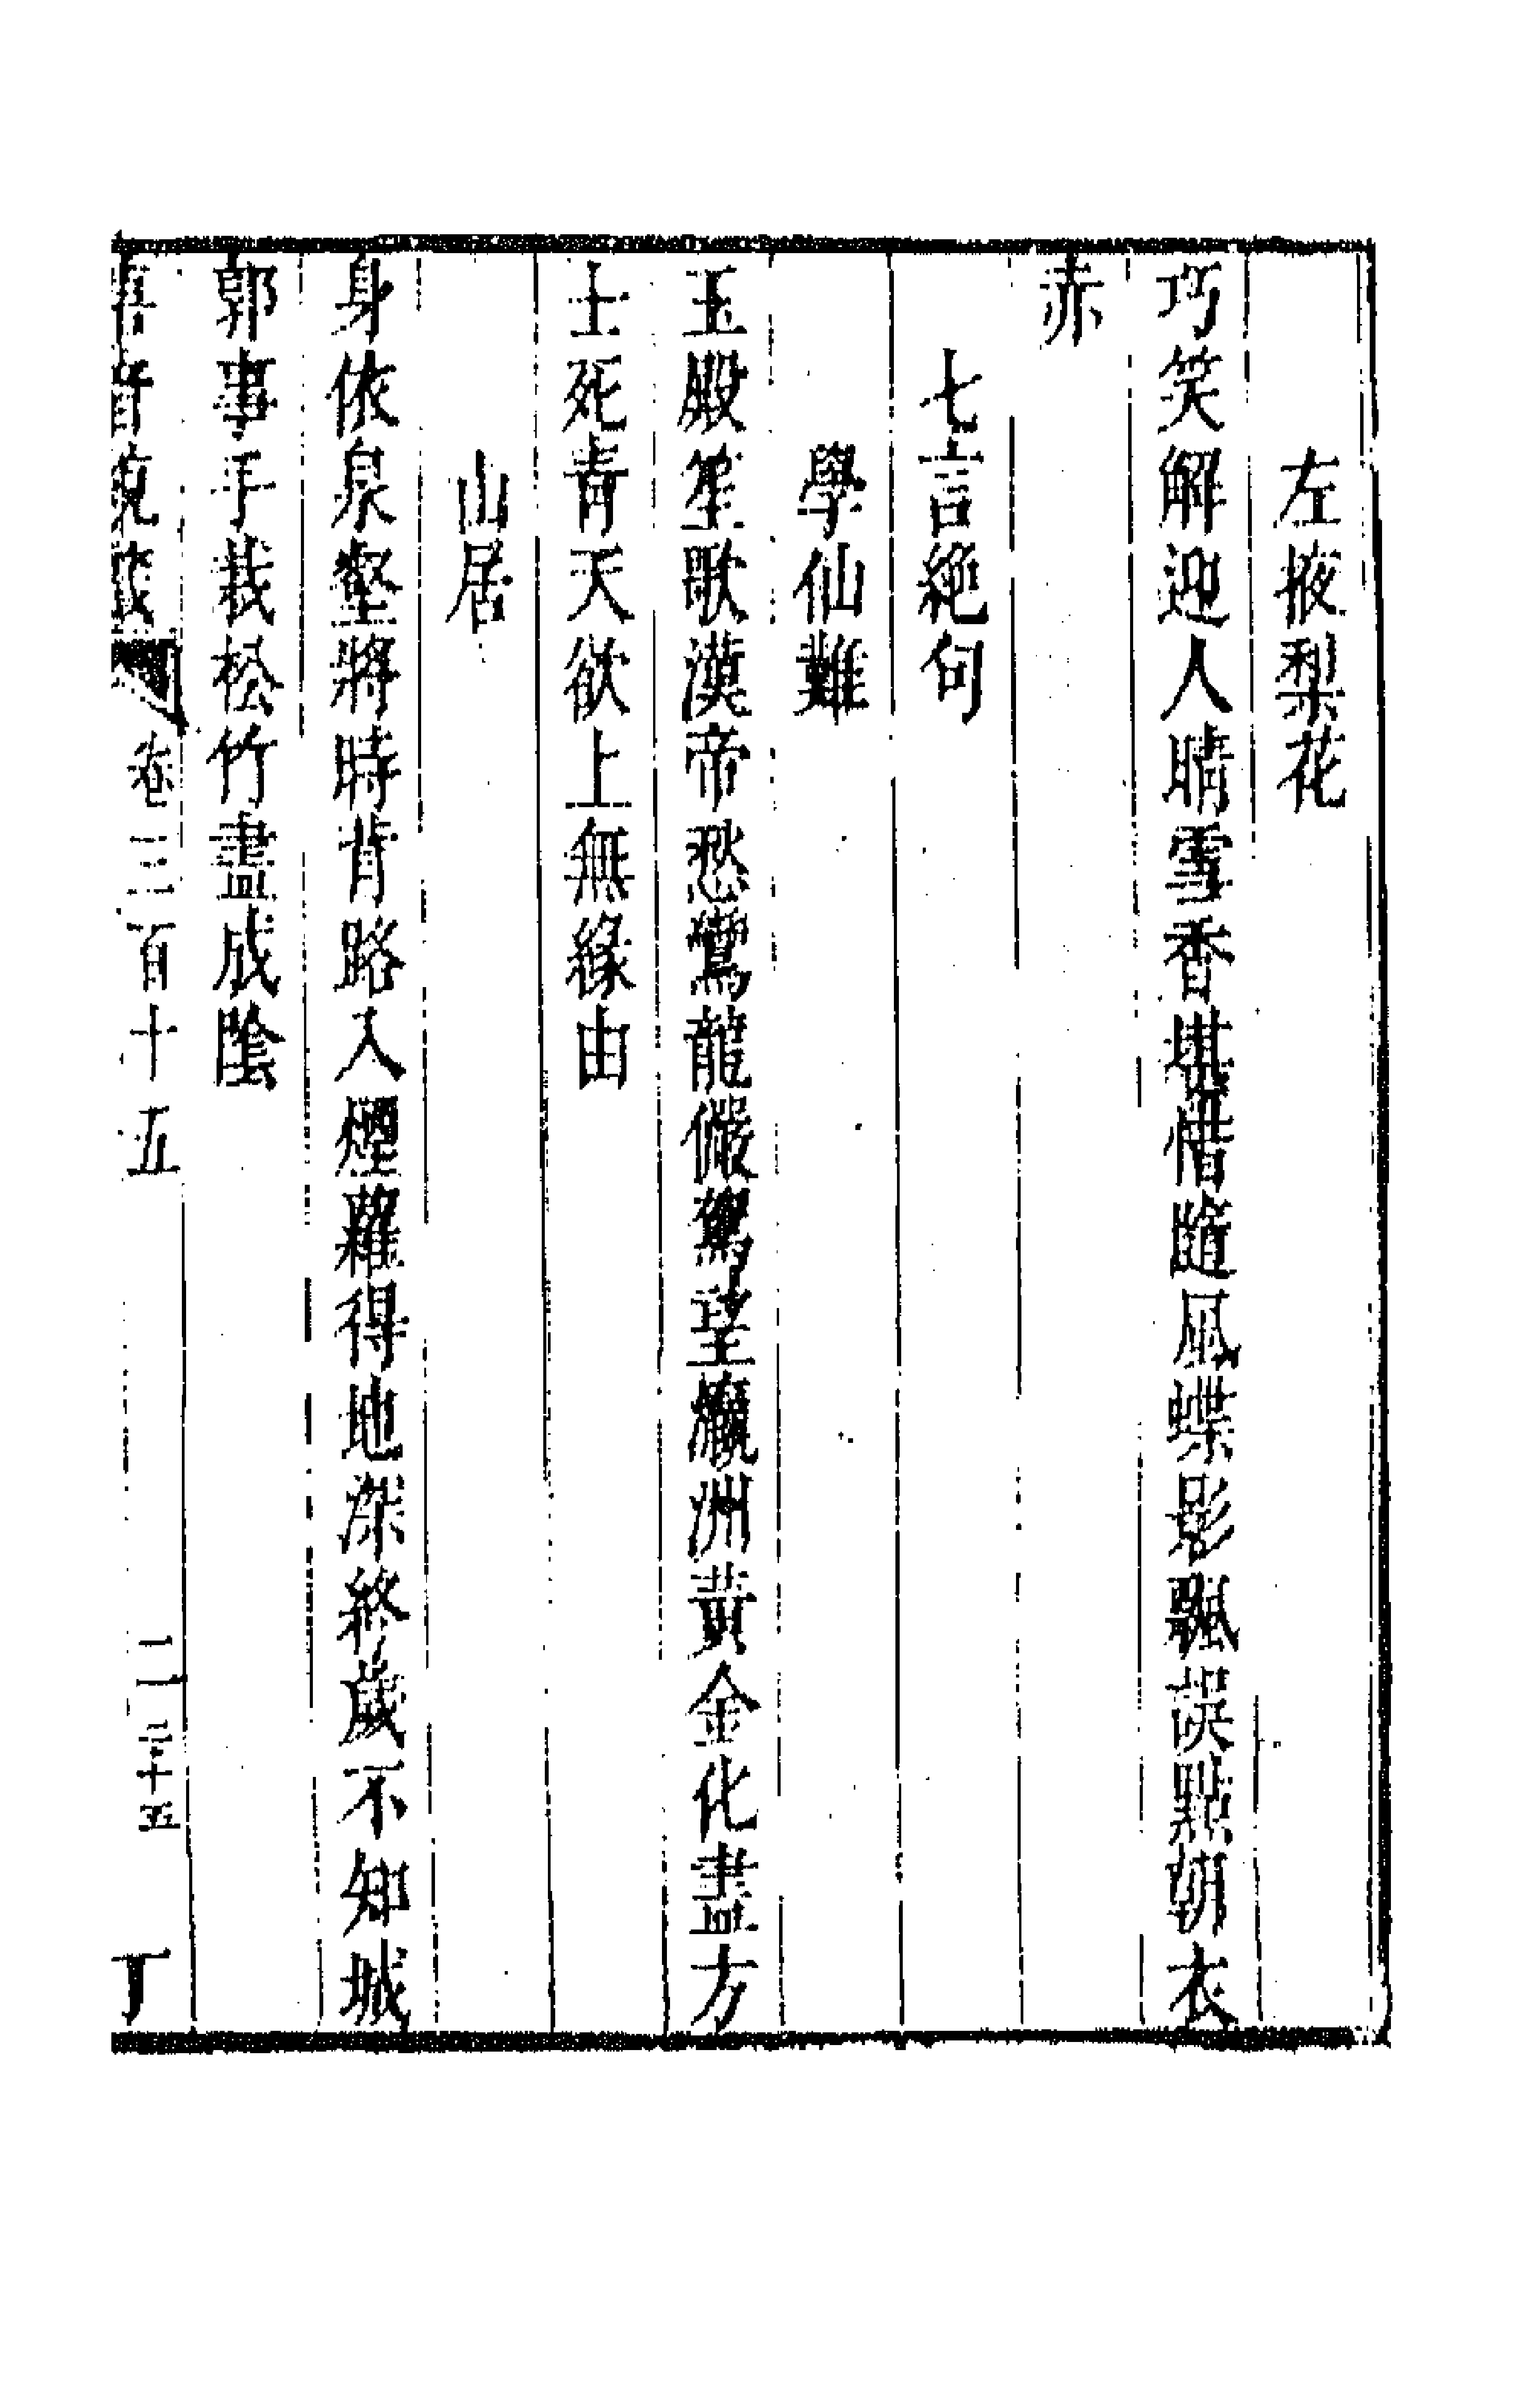 左掖梨花
巧笑解迎人晴雪香堪惜隨風蝶影飄誤點朝衣
赤
七言絶句
學仙難
玉殿笙歌漢帝愁鸞龍儼駕望瀛洲黃金化盡方
士死青天欲上無緣由
山居
身依泉壑將時背路入煙蘿得地深終歲不知城
郭事手栽松竹盡成陰
唐音統籤 卷三百十五 二 三十五 丁